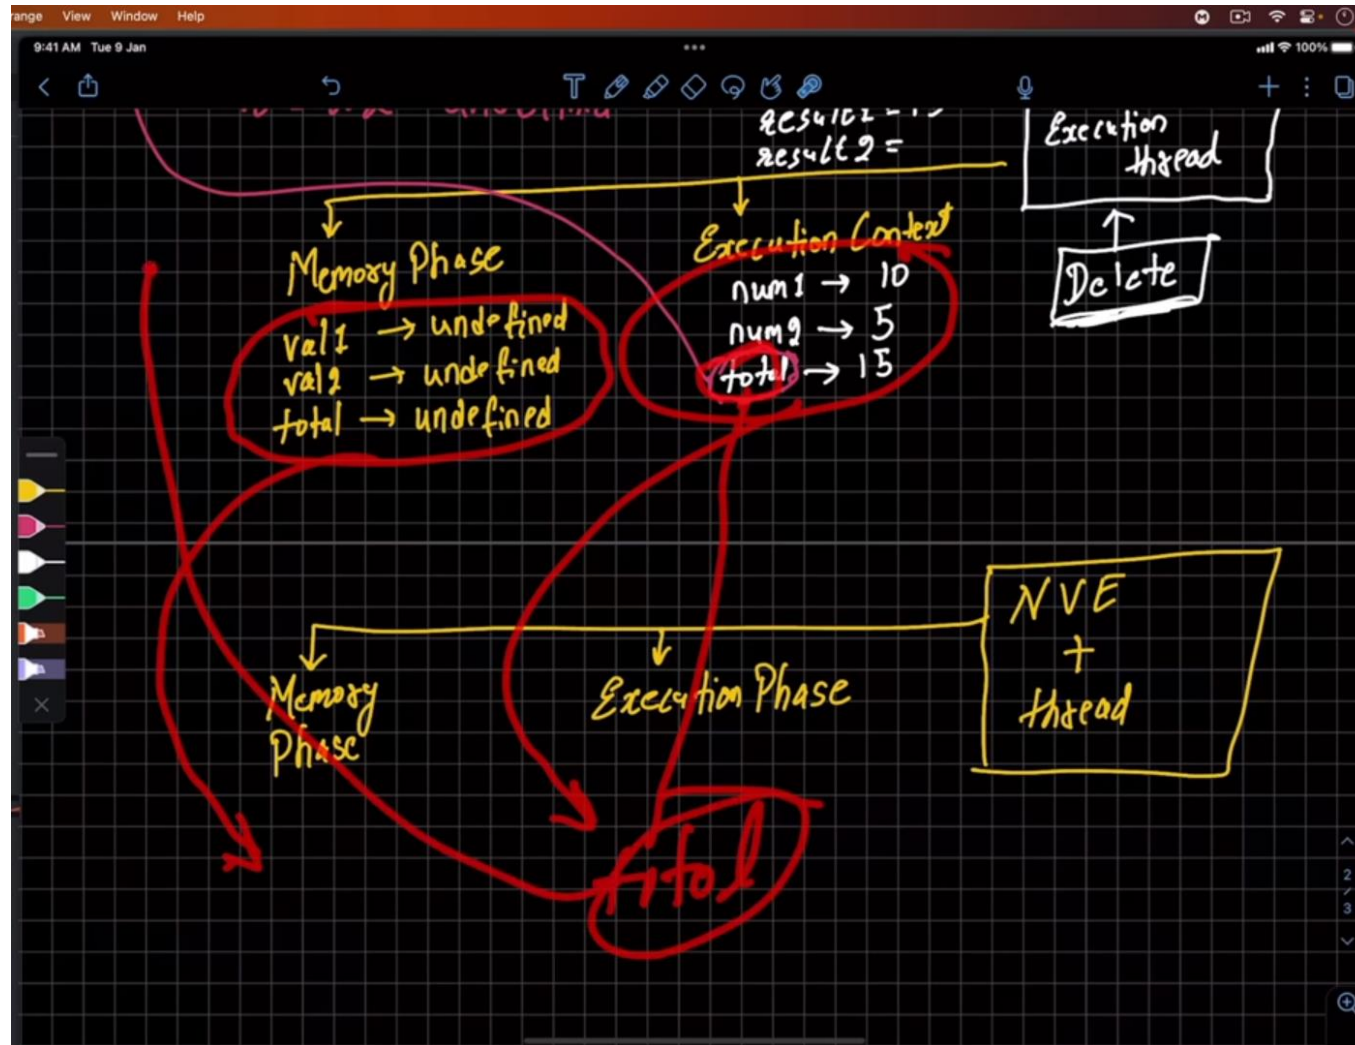 range View Window Help
9:41 AM Tue 9 Jan
100%
result2 =
Execution
thread
Memory Phase
val1 → undefined
val2 → undefined
total → undefined
Execution Context
num1 → 10
num2 → 5
total → 15
Delete
NVE
+
thread
Memory
Phase
Execution Phase
total
2
/
3